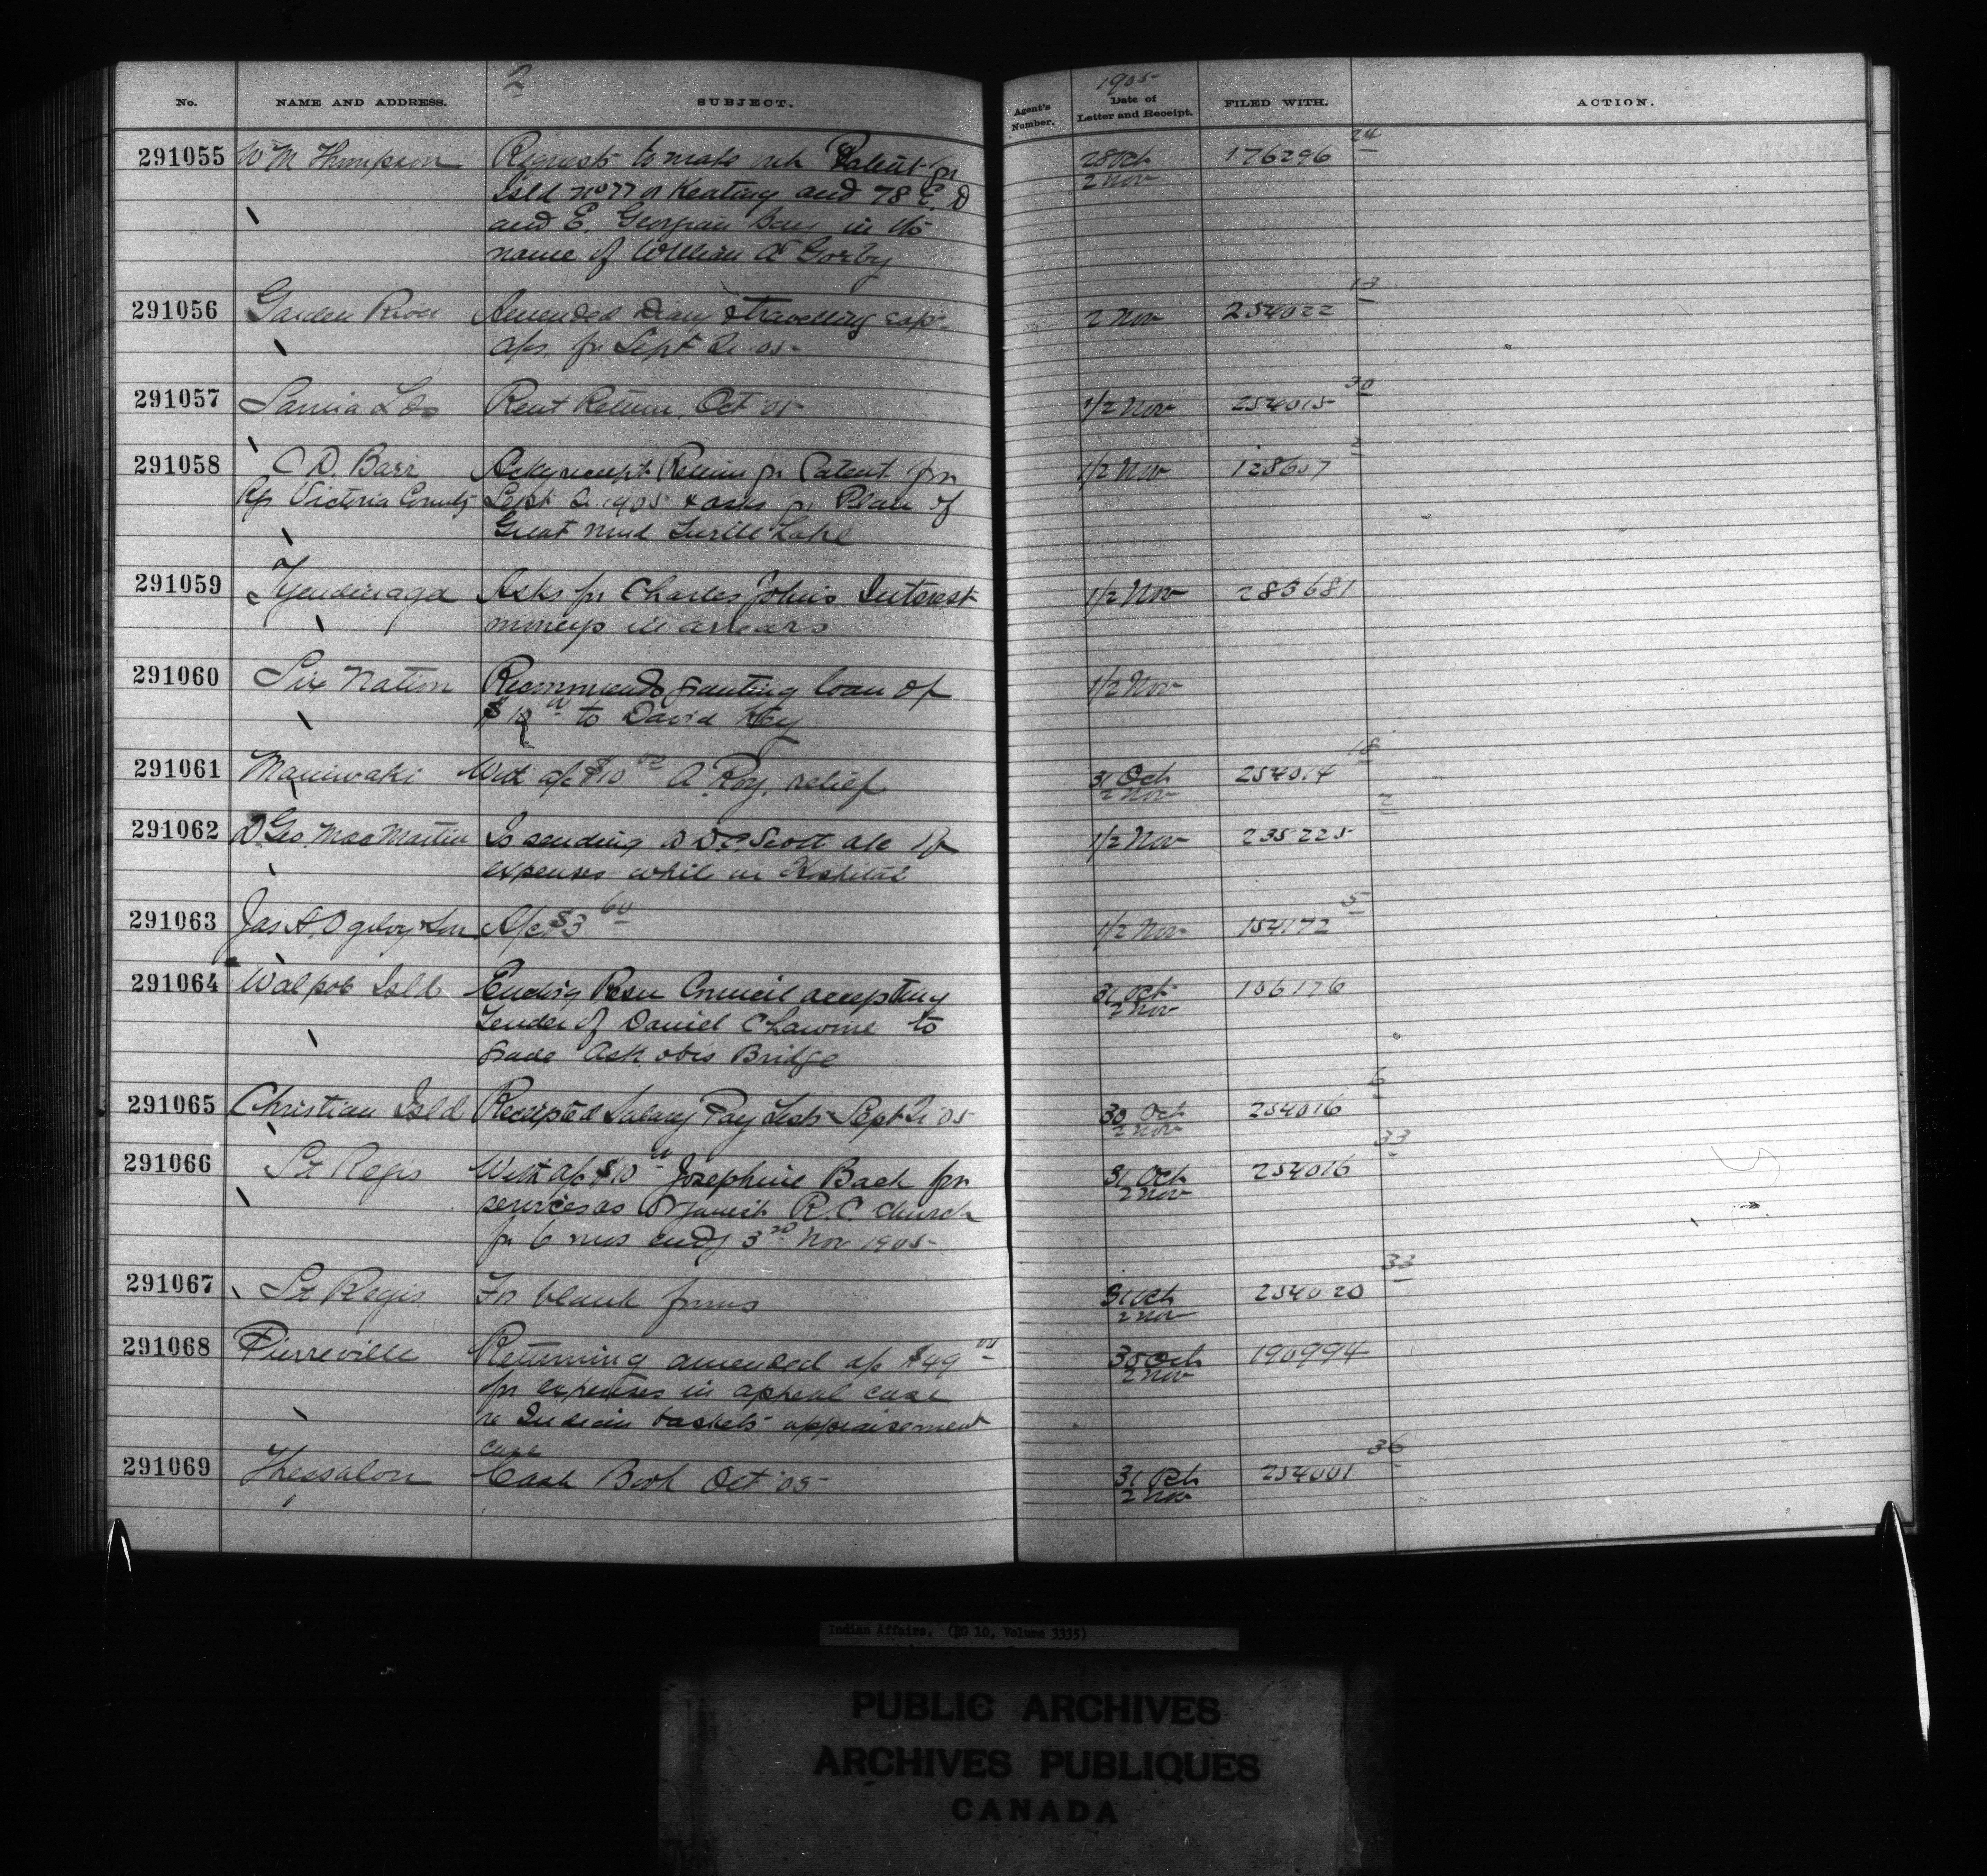 2
1905
No. NAME AND ADDRESS. SUBJECT. Agent's Number. Date of Letter and Receipt. FILED WITH. ACTION.
291055 W M Thompson Requests to make out Patent for 28 Oct 176296 24
Isld no 77 or Keating and 78 E. D 2 Nov
and E. Georgian Bay in the
name of William A Gorby
291056 Garden River Amended Diary & travelling exp. 2 Nov 254022 13
a/cs. for Sept Qr 05
291057 Sarnia Rent Return, Oct 05 1/2 Nov 254015 30
291058 C D. Barr Ackg receipt Return for Patent for 1/2 Nov 128607 2
Rg Victoria County Sept Qr 1905 & asks for Plan of
Great Mud Turtle Lake
291059 Tyendinaga Asks for Charles John's Interest 1/2 Nov 283681
moneys in arrears
291060 Six Nation Recommends granting loan of 1/2 Nov
to David Key
291061 Maniwaki With a/c $10 00 A Roy, relief 31 Oct 254014 18
2 Nov
291062 D Geo. MacMartin Is sending D C Scott a/c of 1/2 Nov 235225 2
expenses while in Hospital
291063 Jas A Ogilvy & Son A/c $3 60 1/2 Nov 154172 5
291064 Walpole Isld Enclosg Resn Council accepting 31 Oct 106176
Tender of Daniel to 2 Nov
grade Bridge
291065 Christian Isld Receipted Salary Pay Lists Sept Qr 05 30 Oct 254016 6
2 Nov
291066 St Regis With a/c $10 00 Josephine Back for 31 Oct 254016 33
services as Organist R.C. Church 2 Nov
for 6 mos endg 3rd Nov 1905
291067 St Regis For blank forms 31 Oct 254020 33
2 Nov
291068 Pierreville Returning amended a/c $49 00 30 Oct 190994
for expenses in appeal case 2 Nov
re Indian baskets appraisement
case
291069 Thessalon Cash Book Oct 05 31 Oct 254001 36
2 Nov
Indian Affairs. (RG 10, Volume 3335)
PUBLIC ARCHIVES
ARCHIVES PUBLIQUES
CANADA